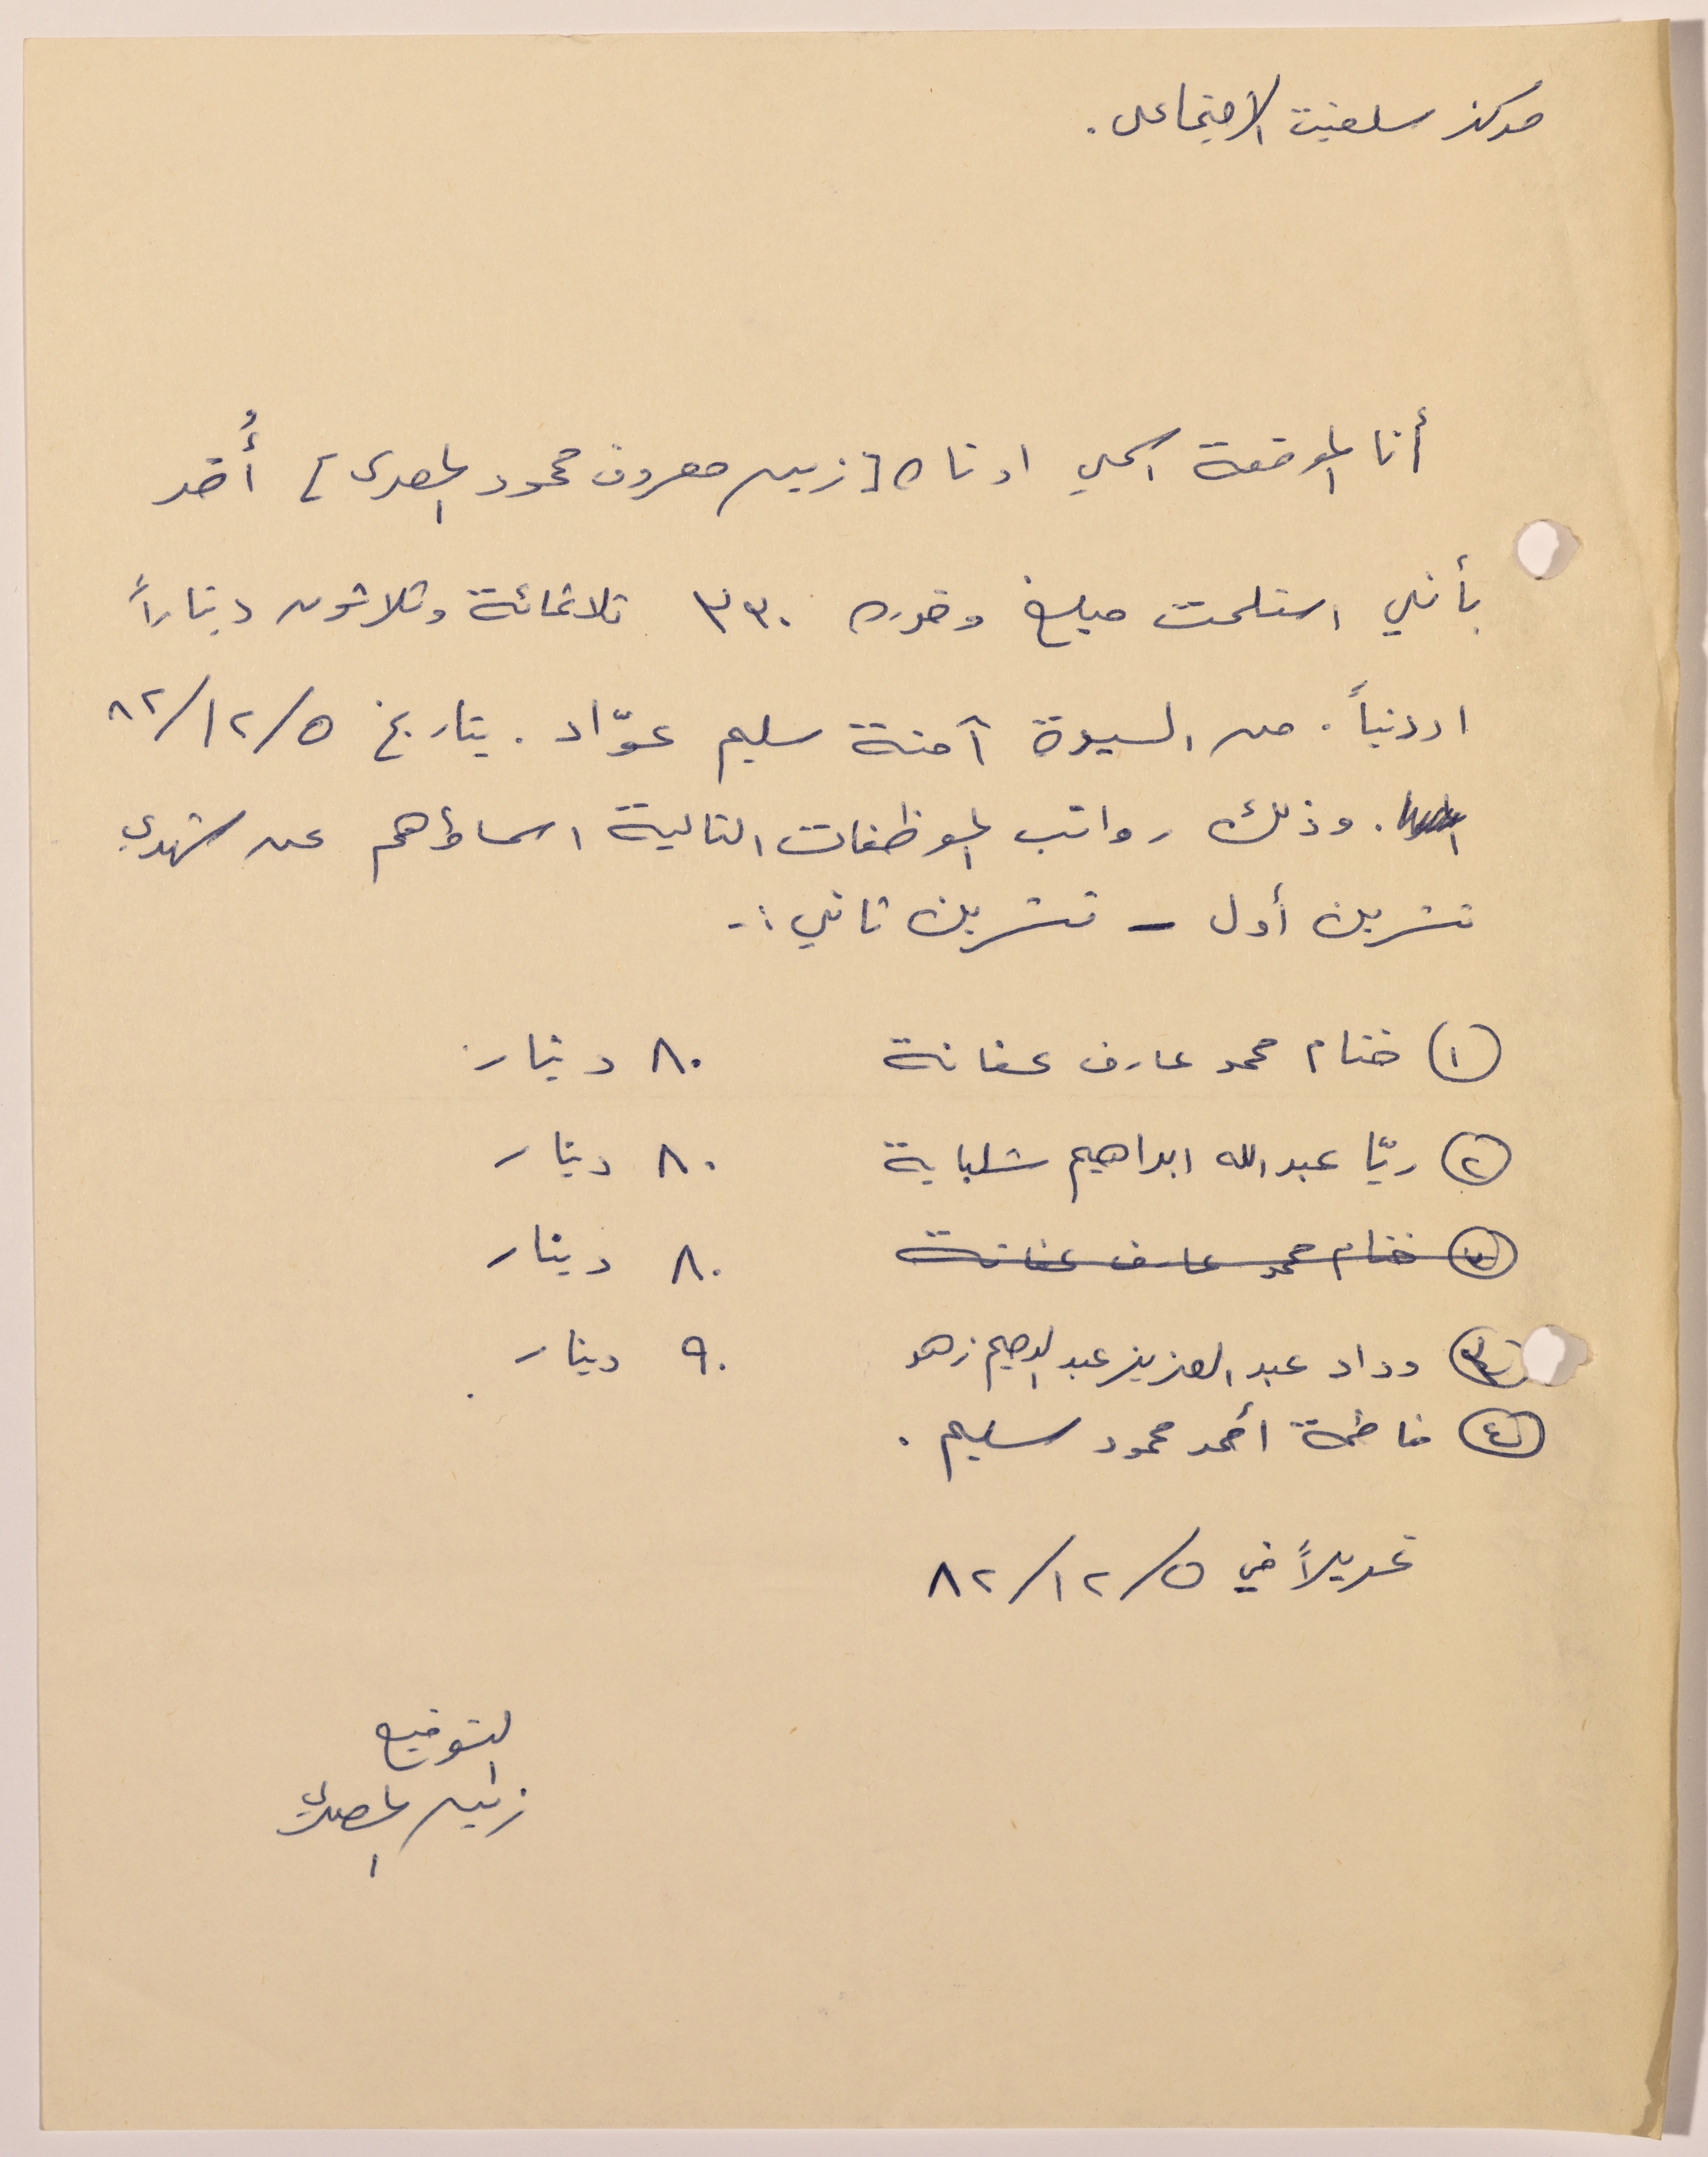 مركز سلفيت الاجتماعي .
أنا الموقعة اسمي ادناه [ زين معروف محمود المصري ] أُقر
بأنني استلمت مبلغ وقدره ٣٣٠ ثلاثمائة وثلاثون ديناراً
اردنياً . من السيدة آمنة سليم عوّاد . بتاريخ ٥/١٢/٨٢
. وذلك رواتب الموظفات التالية اسماؤهم عن شهري
تشرين أول - تشرين ثاني :-
١ ختام محمد عارف عفانة ٨٠ دينار
٢ ريّا عبد الله ابراهيم شلباية ٨٠ دينار
٣ ختام محمد عارف عفانة ٨٠ دينار
٣ وداد عبد العزيز عبد الرحيم زهد ٩٠ دينار .
٤ فاطمة أحمد محمود سليم .
تحريراً في ٥/١٢/٨٢
التوقيع
زين المصري